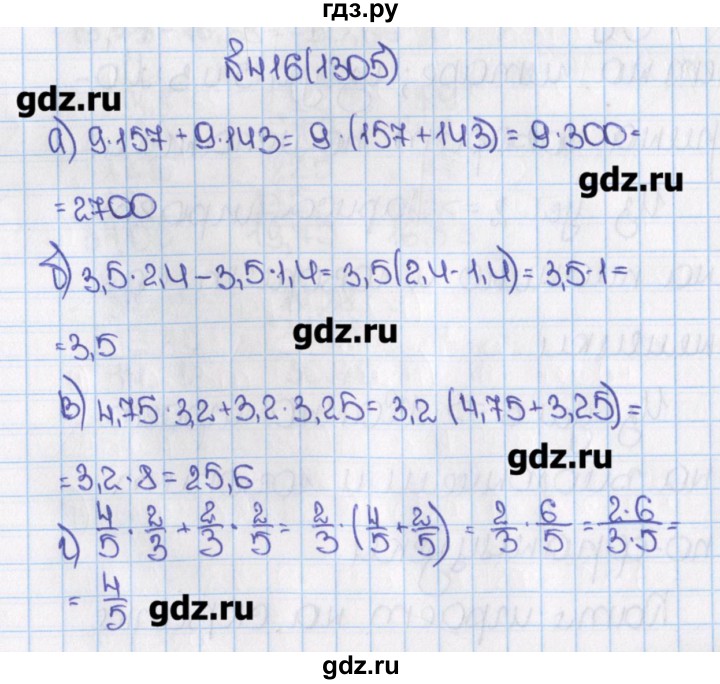 гдз.ру
В.416(1305)
gdz.ru
а) 9·157+9·143= 9·(157+143)=9·300=
gdz.ru
=2700
б) 3,5·2,4-3,5·1,4=3,5(2,4-1,4)=3,5·1=
gdz.ru
=3,5
в) 4,75·3,2+3,2·3,25=3,2(4,75+3,25)=
gdz.ru
=3,2·8=25,6
г) 4/5·2/3+2/3·2/5=2/3·(4/5+2/5)=2/3·6/5=2·6/3·5=
=4/5
gdz.ru
gdz.ru